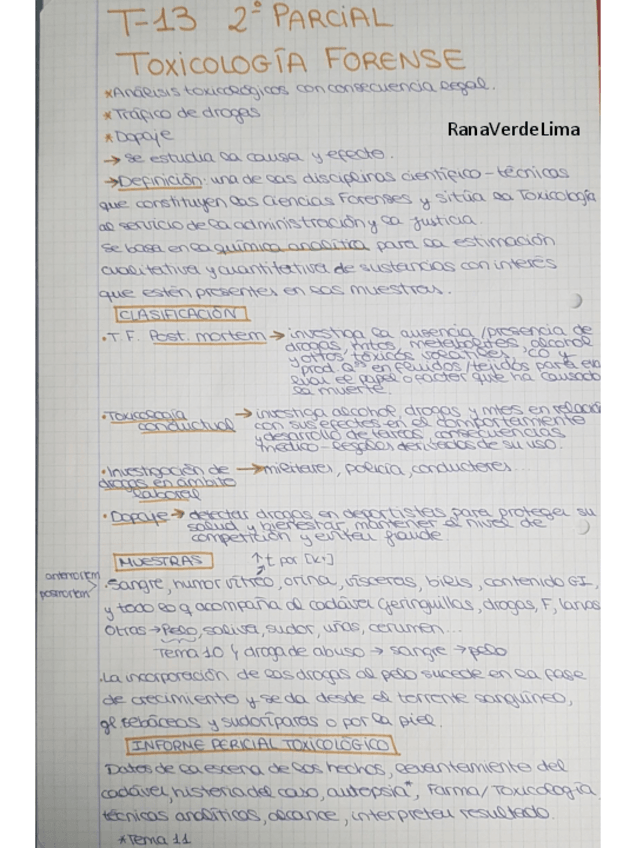 T-13 2º PARCIAL
TOXICOLOGÍA FORENSE
*Análisis toxicológicos con consecuencia legal.
*Tráfico de drogas
*Dopaje
RanaVerdeLima
→ se estudia la causa y efecto.
→Definición: una de las disciplinas científico-técnicas
que constituyen las Ciencias Forenses y sitúa la Toxicología
al servicio de la administración y la justicia.
Se basa en la química analítica para la estimación
cualitativa y cuantitativa de sustancias con interés
que estén presentes en las muestras.
CLASIFICACIÓN
·T.F. Post. mortem → investiga la ausencia/presencia de
drogas, metabolitos, alcohol
y otros tóxicos volátiles, CO y
prod. Qº en fluidos/tejidos para
el papel o factor que ha causado
la muerte.
·Toxicología conductual → investiga alcohol, drogas y mtes en relación
con sus efectos en el comportamiento
y desarrollo de tareas, consecuencias
médico-legales derivadas de su uso.
·Investigación de drogas en ámbito laboral → militares, policía, conductores...
·Dopaje → detectar drogas en deportistas para proteger su
salud y bienestar, mantener el nivel de
competición y fraude
MUESTRAS ↑t por [K+]
antemortem
postmortem
·Sangre, humor vítreo, orina, vísceras, bilis, contenido GI,
y todo lo q acompaña al cadáver (jeringuillas, drogas, F,
Otras → Pelo, saliva, sudor, uñas, cerumen...
Tema 10 droga de abuso → sangre → pelo
·La incorporación de las drogas al pelo sucede en la fase
de crecimiento y se da desde el torrente sanguíneo,
gl sebáceas y sudoríparas o por la piel.
INFORME PERICIAL TOXICOLÓGICO
Datos de la escena de los hechos, levantamiento del
cadáver, historia del caso, autopsia*, Farma/Toxicología
técnicas analíticas, alcance, interpretau resultado.
*Tema 11